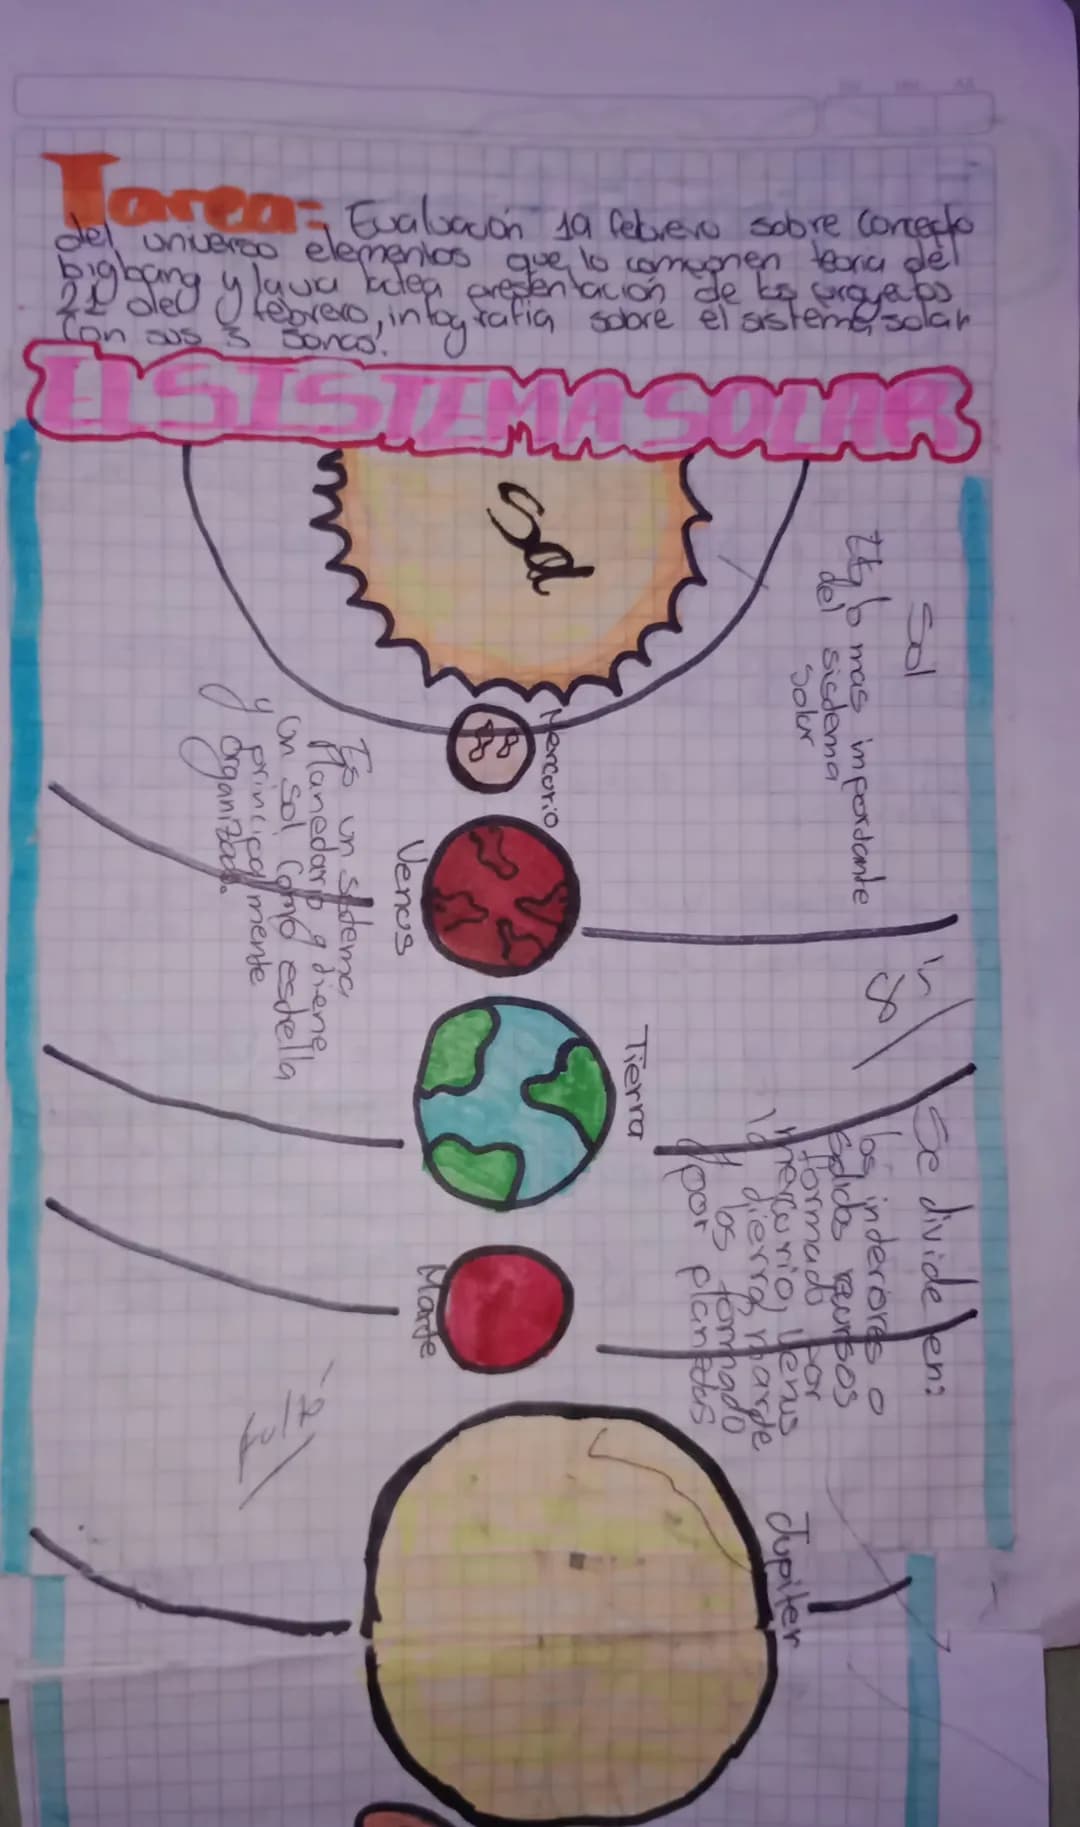 Tarea= Evaluación 19 febrero sobre concepto
del universo elementos que lo componen teoria del
bigbang y lava lactea presentación de los proyectos
21 del febrero, infografia sobre el sistema solar
Con sus 3 zonas.
El SISTEMA SOLAR
Sol
Sol
Es lo mas importante
del sistema
solar
Mercurio
Venus
Es un sistema
planedario q diene
un sol como esdella
y principalmente
organizado.
Tierra
Se divide en:
los inderiores o
solidos rocursos
formado por
mercurio, Venus
la dierra, marde
y los formado
por planedas
Marde
Jupiter